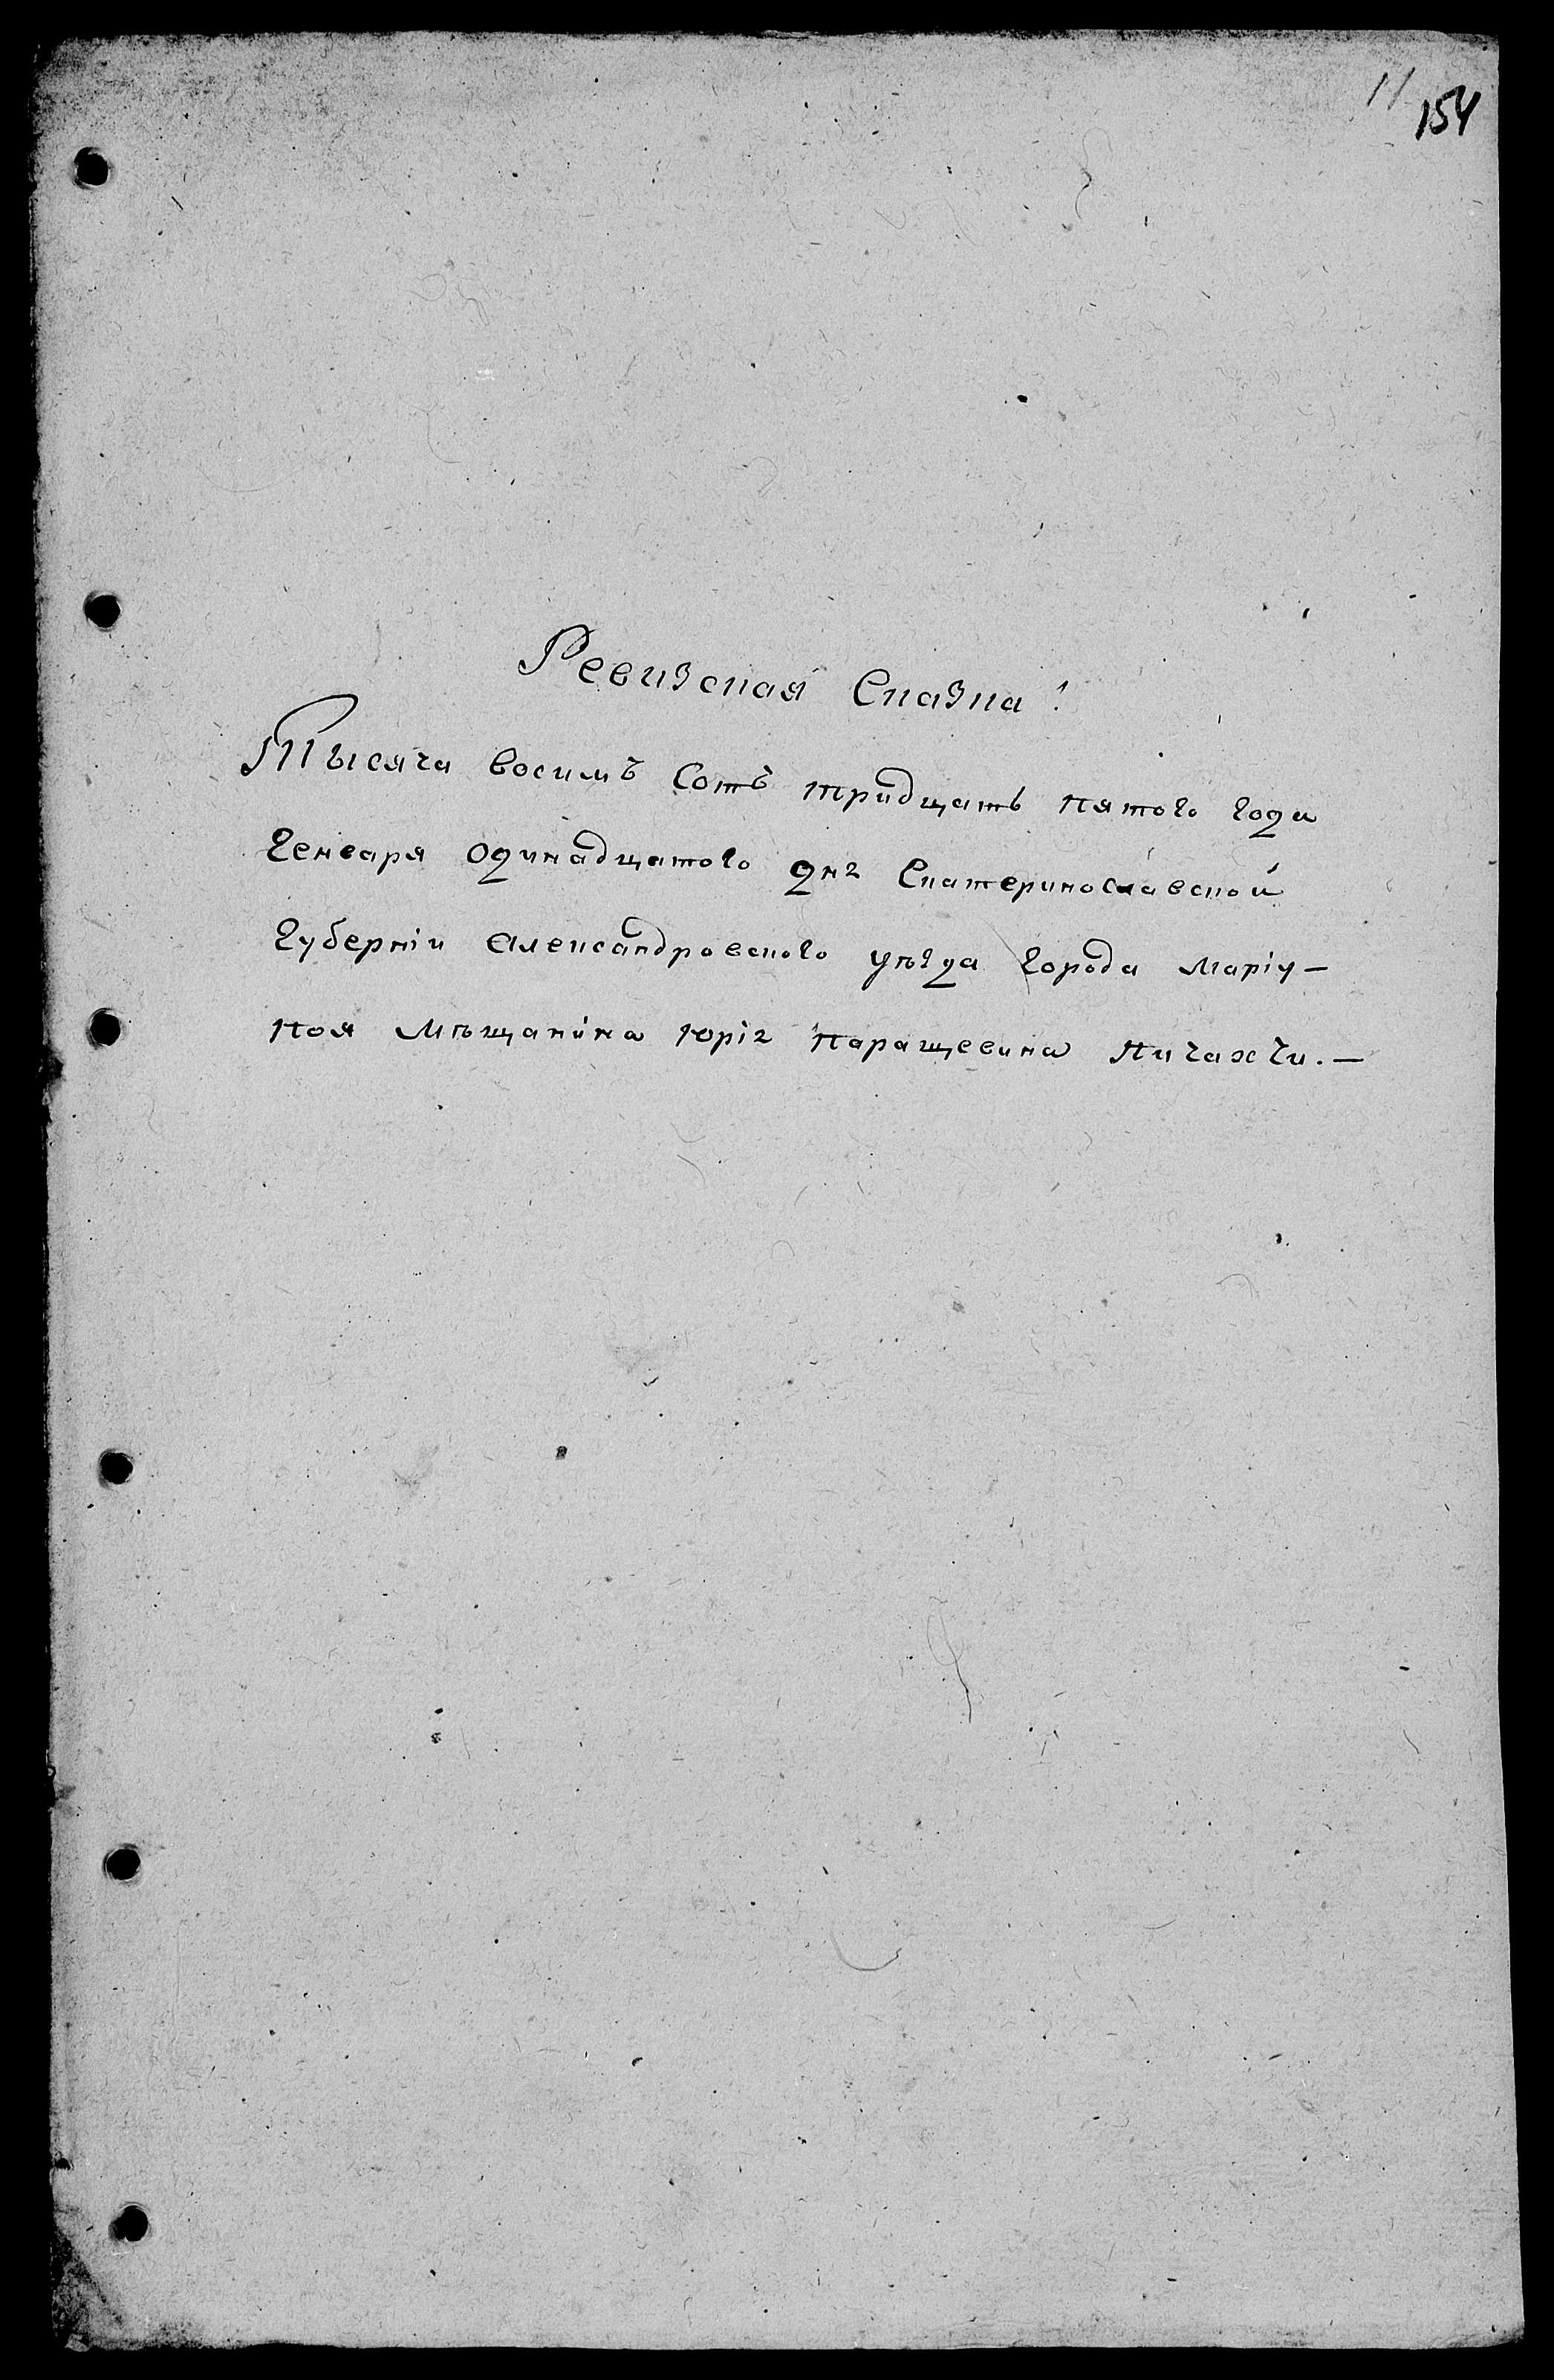 11
154
Ревизская Сказка!
Тысяча восимъ Сотъ тридцать пятого года
Генваря одинадцатого дня Екатеринославской
Губерніи Александровского уѣзда города Маріу-
поя Мѣщанина Юрія Паращевина